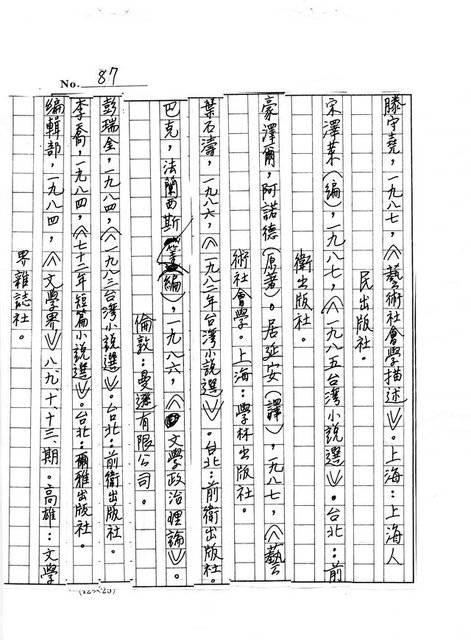 No. 87
滕守堯，一九八七，《藝術社會學描述》。上海：上海人
民出版社。
宋澤萊（編），一九八七，《一九八五台灣小說選》。台北：前
衛出版社。
豪澤爾，阿諾德（原著）。居延安（譯），一九八七，《藝
術社會學》。上海：學林出版社。
葉石濤，一九八六，《一九八二年台灣小說選》。台北：前衛出版社。
巴克，法蘭西斯（編），一九八六，《文學政治理論》。
倫敦：曼邇有限公司。
彭瑞金，一九八四，《一九八三台灣小說選》。台北：前衛出版社。
李喬，一九八四，《七十二年短篇小說選》。台北：爾雅出版社。
編輯部，一九八四，《文學界》八、九、十、十三、期。高雄：文學
界雜誌社。